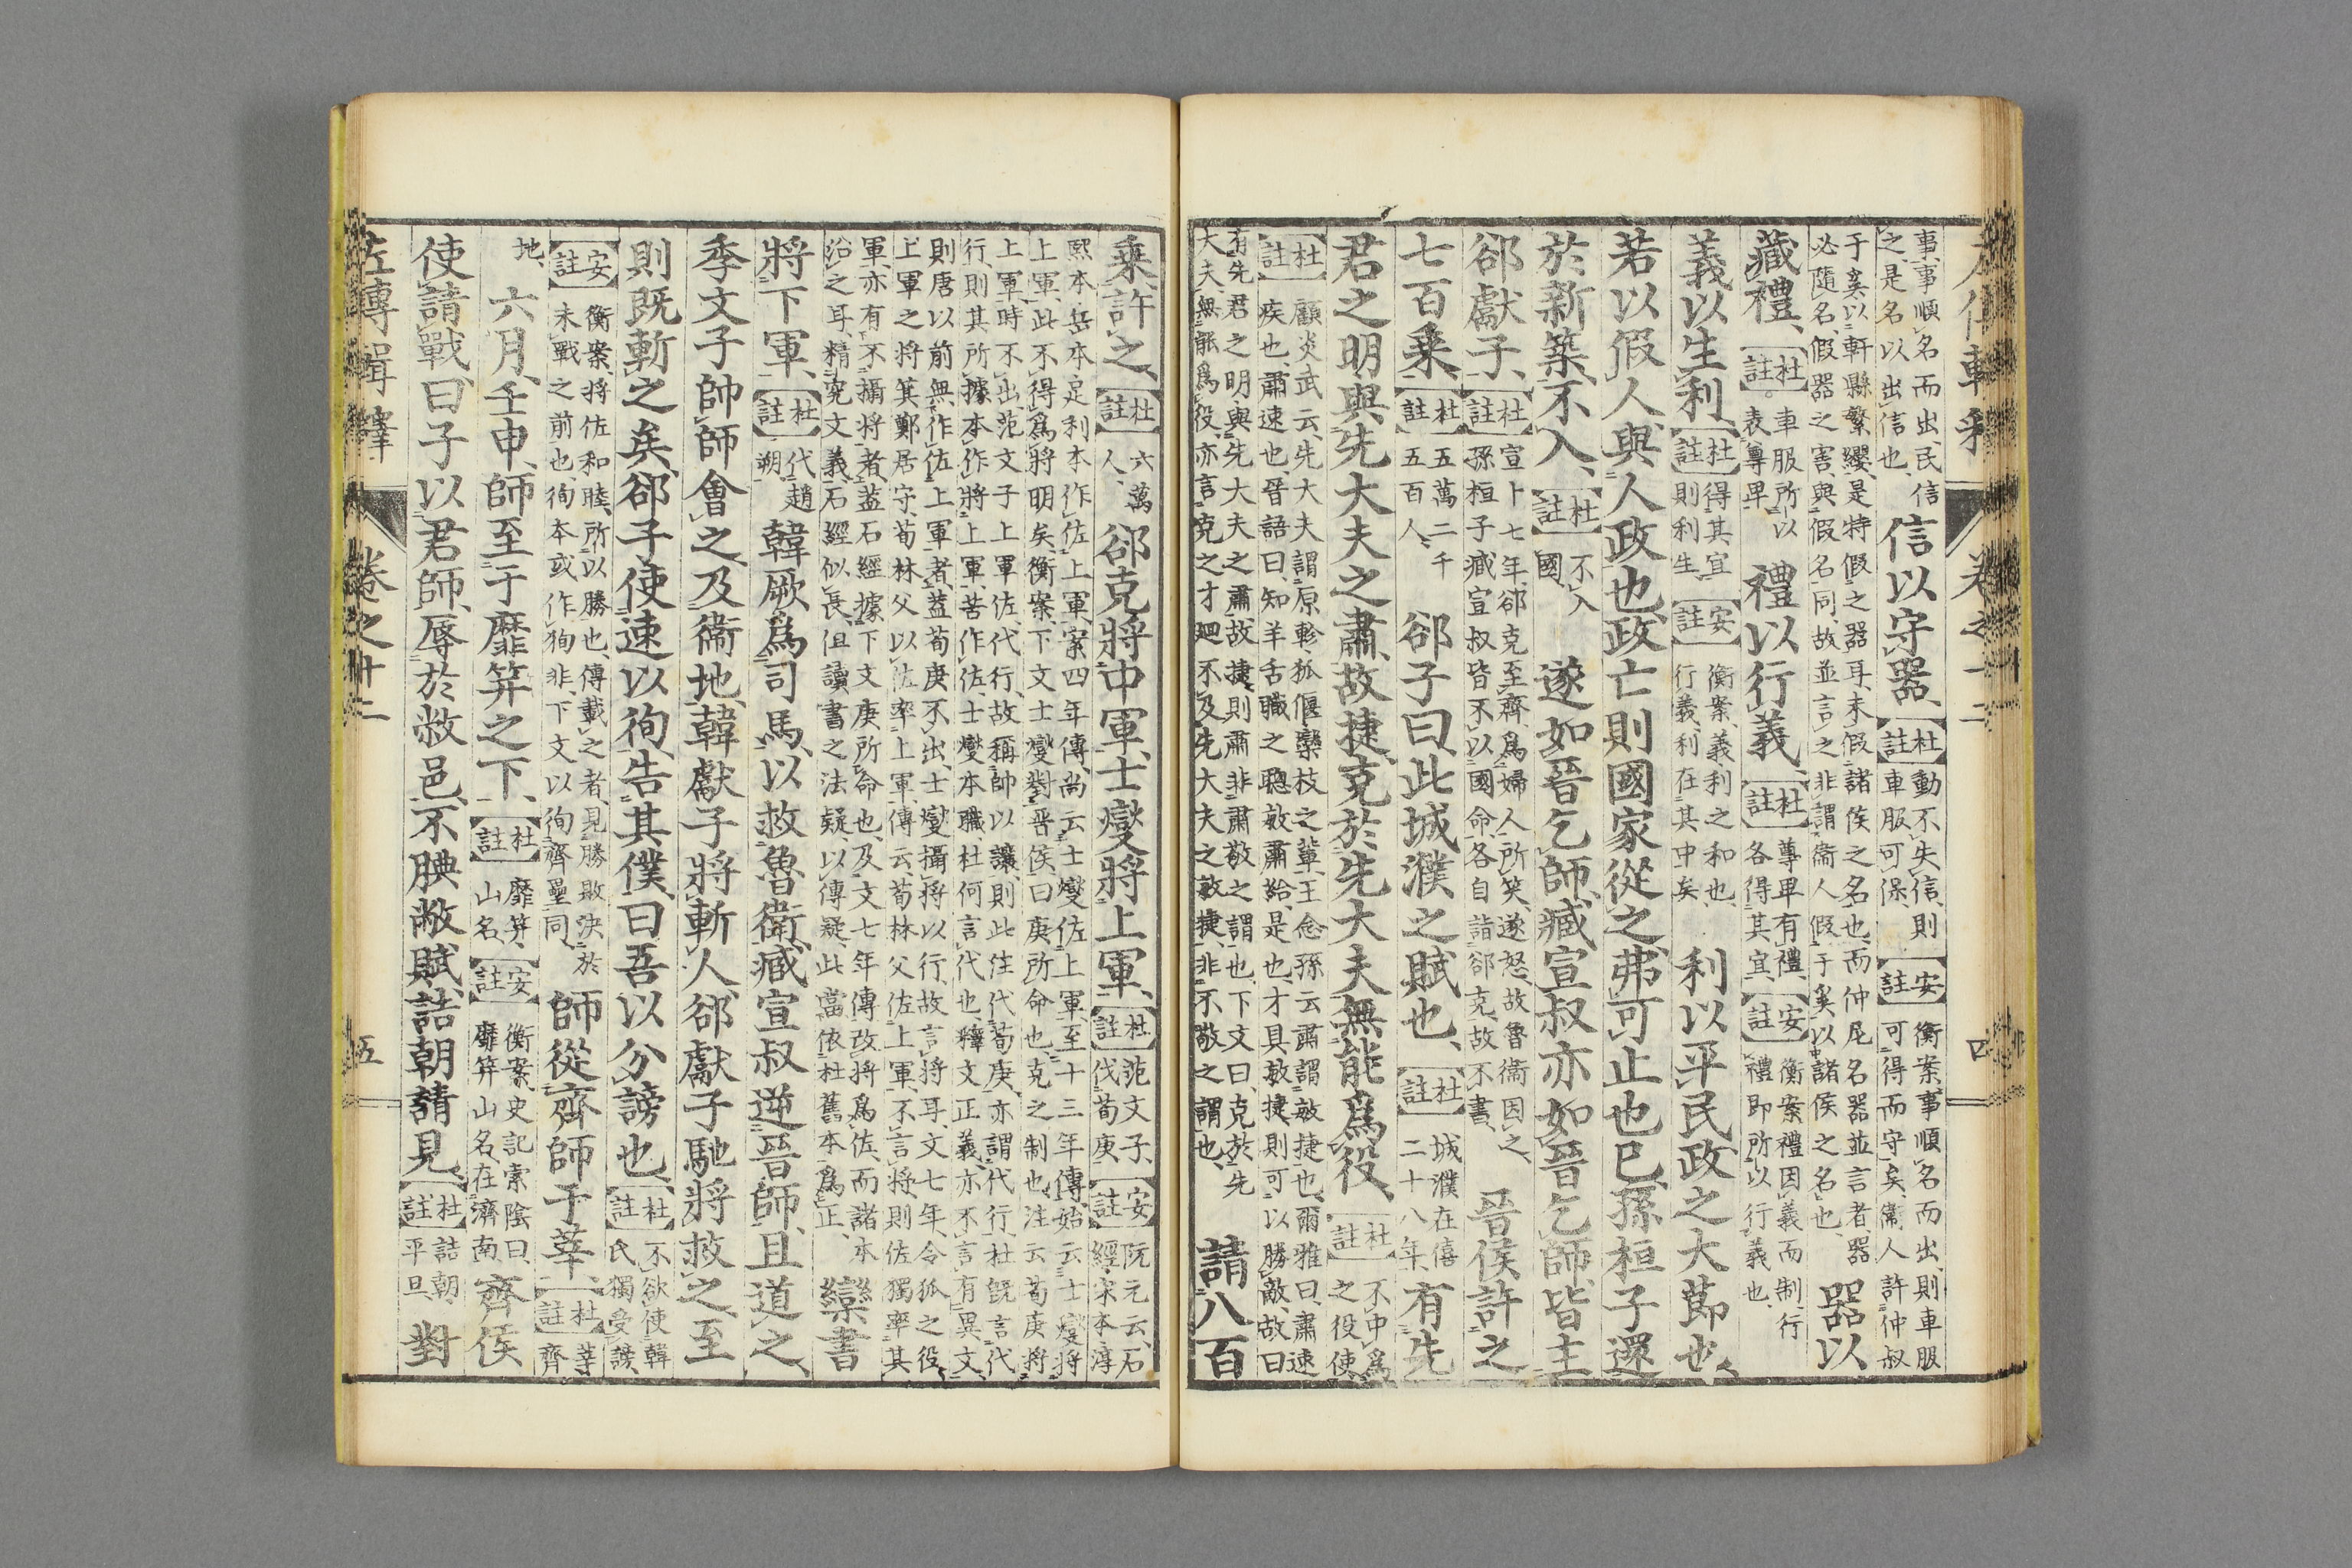 左傳輯釋 卷之十二 四
事、事順名而出、民信
之、是名以出信也、
信以守器、
杜註 動不失信、則
車服可保、
安註 衡案、事順名而出、則車服
可得而守矣、衞人許仲叔
于奚以軒縣繁纓、是特假之器耳、未假諸侯之名也、而仲尼名器並言者、器
必隨名、假器之害、與假名同、故並言之、非謂衞人假于奚以諸侯之名也、
器以
藏禮、
杜註 車服所以
表尊卑、
禮以行義、
杜註 尊卑有禮、
各得其宜、
安註 衡案、禮因義而制、行
禮即所以行義也、
義以生利、
杜註 得其宜
則利生、
安註 衡案、義利之和也、
行義、利在其中矣、
利以平民、政之大節也、
若以假人、與人政也、政亡則國家從之、弗可止也已、孫桓子還
於新築、不入、
杜註 不入
國、
遂如晉乞師、臧宣叔亦如晉乞師、皆主
郤獻子、
杜註 宣十七年、郤克至齊、爲婦人所笑、遂怒、故魯衞因之、
孫桓子臧宣叔皆不以國命、各自詣郤克、故不書、
晉侯許之
七百乘、
杜註 五萬二千
五百人、
郤子曰、此城濮之賦也、
杜註 城濮在僖
二十八年、
有先
君之明、與先大夫之肅、故捷、克於先大夫、無能爲役、
杜註 不中爲
之役使、
杜註 顧炎武云、先大夫謂原軫、狐偃、欒枝之輩、王念孫云、肅謂敏捷也、爾雅曰、肅速
疾也、肅速也、晉語曰、知羊舌職之聰敏肅給、是也、才具敏捷、則可以勝敵、故曰
有先君之明、與先大夫之肅、故捷、則肅非肅敬之謂也、下文曰、克於先
大夫、無能爲役、亦言克之才廻不及先大夫之敏捷、非不敬之謂也、
請八百
乘、許之、
杜註 六萬
人、
郤克將中軍、士燮將上軍、
杜註 范文子、
代荀庚、
安註 阮元云、石
經宋本淳
熙本岳本足利本、作佐上軍、案四年傳、尚云士燮佐上軍、至十三年傳、始云士燮將
上軍、此不得爲將明矣、衡案、下文士燮對晉侯、曰庚所命也、克之制也、注云荀庚將
上軍、時不出、范文子上軍佐、代行、故稱帥以讓、則此注代荀庚、亦謂代行、杜旣言代
行、則其所據本作將上軍、苦作佐、士燮本職、杜何言代也、釋文正義亦不言有異文、
則唐以前無作佐上軍者、蓋荀庚不出、士燮攝將以行、故言將耳、文七年、令狐之役、
上軍之將箕鄭居守、荀林父以佐率上軍、傳云、荀林父佐上軍、不言將、則佐獨率其
軍、亦有不攝將者、蓋石經據下文庚所命也、及文七年傳、改將爲佐、而諸本
沿之耳、精究文義、石經似長、但讀書之法、疑以傳疑、此當依杜舊本爲正、
欒書
將下軍、
杜註 代趙
朔、
韓厥爲司馬、以救魯衞、臧宣叔逆晉師、且道之、
季文子帥師會之、及衞地、韓獻子將斬人、郤獻子馳、將救之、至
則既斬之矣、郤子使速以徇、告其僕、曰吾以分謗也、
杜註 不欲使韓
氏獨受謗、
安註 衡案、將佐和睦、所以勝也、傳載之者、見勝敗決於
未戰之前也、徇本或作狥非、下文以徇齊壘同、
師從齊師于莘、
杜註 莘齊
地、
六月、壬申、師至于靡笄之下、
杜註 靡笄、
山名、
安註 衡案、史記索隱曰、
靡笄山名、在濟南、
齊侯
使請戰、曰子以君師、辱於敝邑、不腆敝賦、詰朝請見、
杜註 詰朝、
平旦、
對
左傳輯釋 卷之十二 五